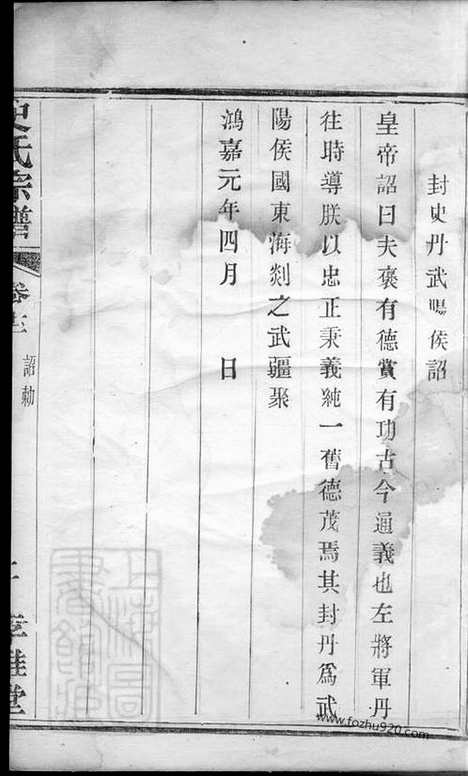 封史丹武陽侯詔
皇帝詔曰夫褒有德賞有功古今通義也左將軍丹
往時導朕以忠正秉義純一舊德茂焉其封丹為武
陽侯國東海郯之武疆聚
鴻嘉元年四月　日
史氏宗譜
詔勅
www.fozhu920.com